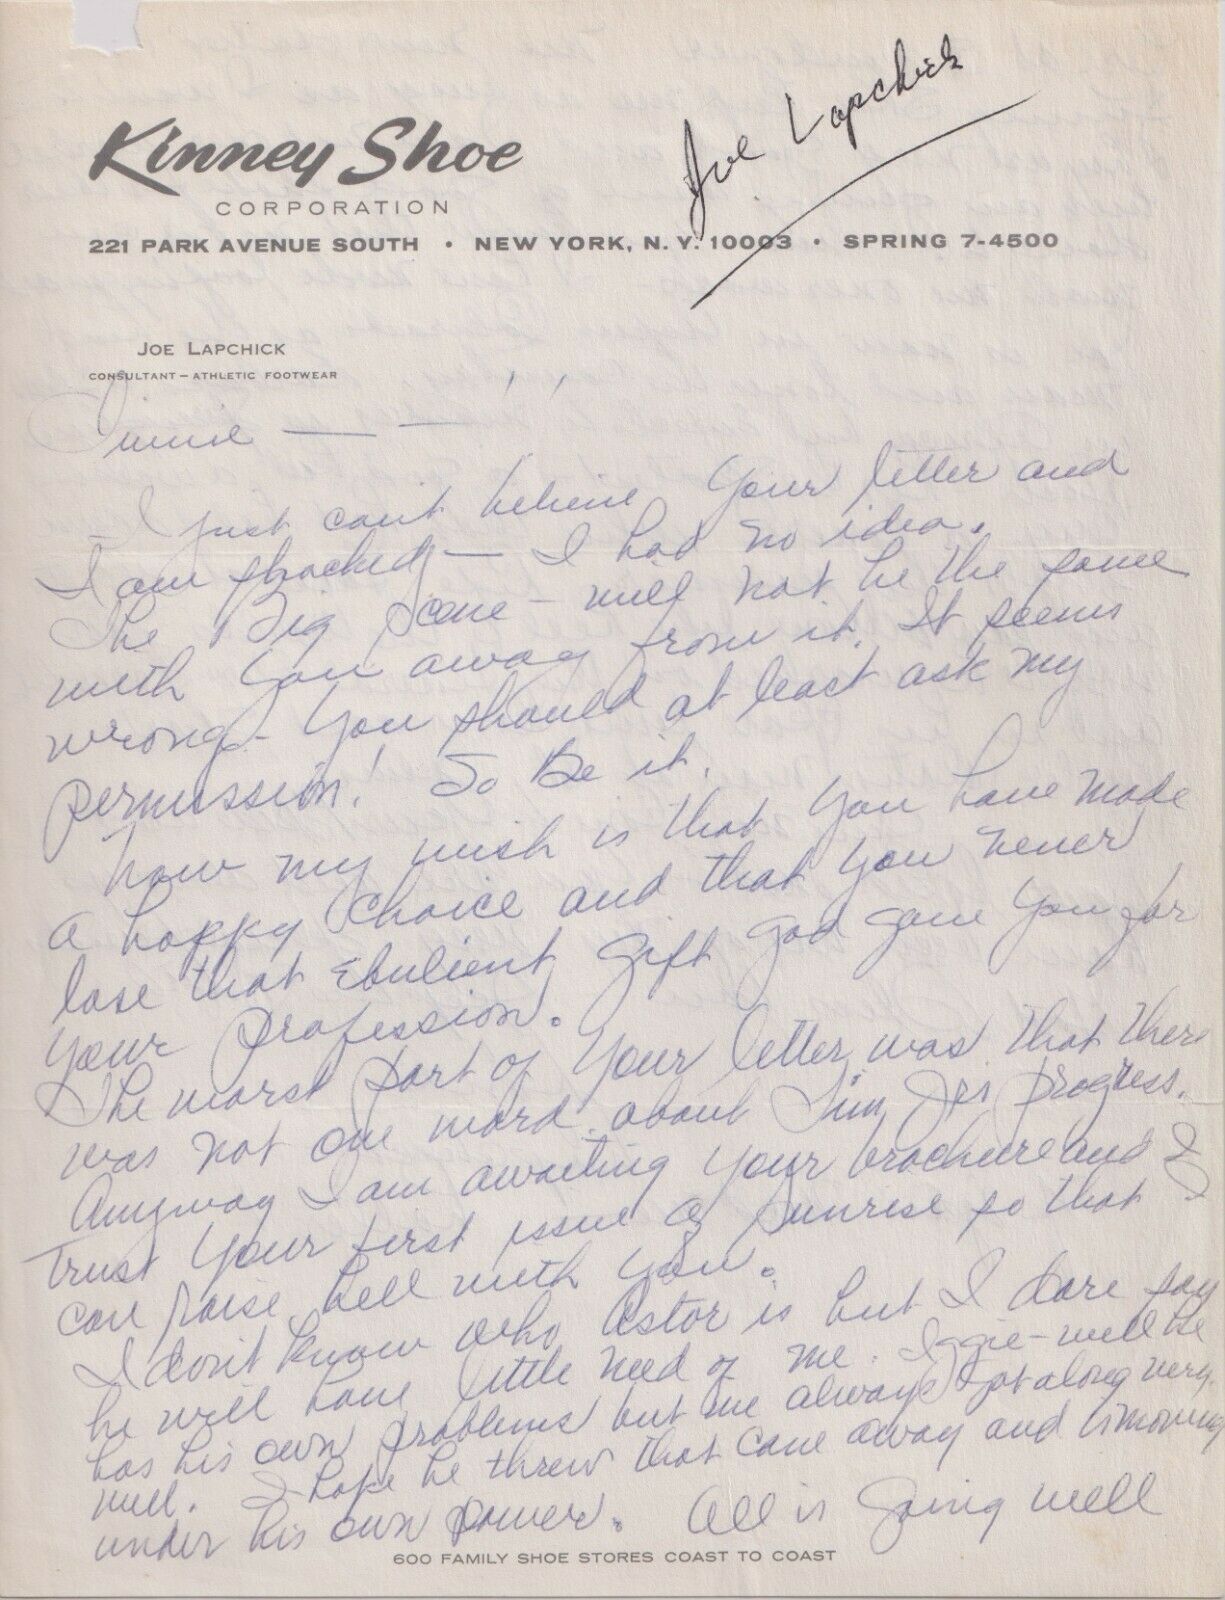 Joe Lapchick
Kinney Shoe
CORPORATION
221 PARK AVENUE SOUTH • NEW YORK, N. Y. 10003 • SPRING 7-4500
JOE LAPCHICK
CONSULTANT — ATHLETIC FOOTWEAR
I just can't believe your letter and
I am shocked — I had no idea.
The Big Scene — will not be the same
with you away from it. It seems
wrong — You should at least ask my
permission! So Be it.
Now my wish is that you have made
a happy choice and that you never
lose that Ebulient gift god gave you for
your profession.
The worst part of your letter was that there
was not one word about progress.
Anyway I am awaiting your brochure and I
trust your first issue of Sunrise so that I
can raise hell with you.
I don't know who Astor is but I dare say
he will have little need of me. Iggie — will be
has his own problems but we always got along very
well. I hope he threw that cane away and is moving
under his own power. All is going well
600 FAMILY SHOE STORES COAST TO COAST